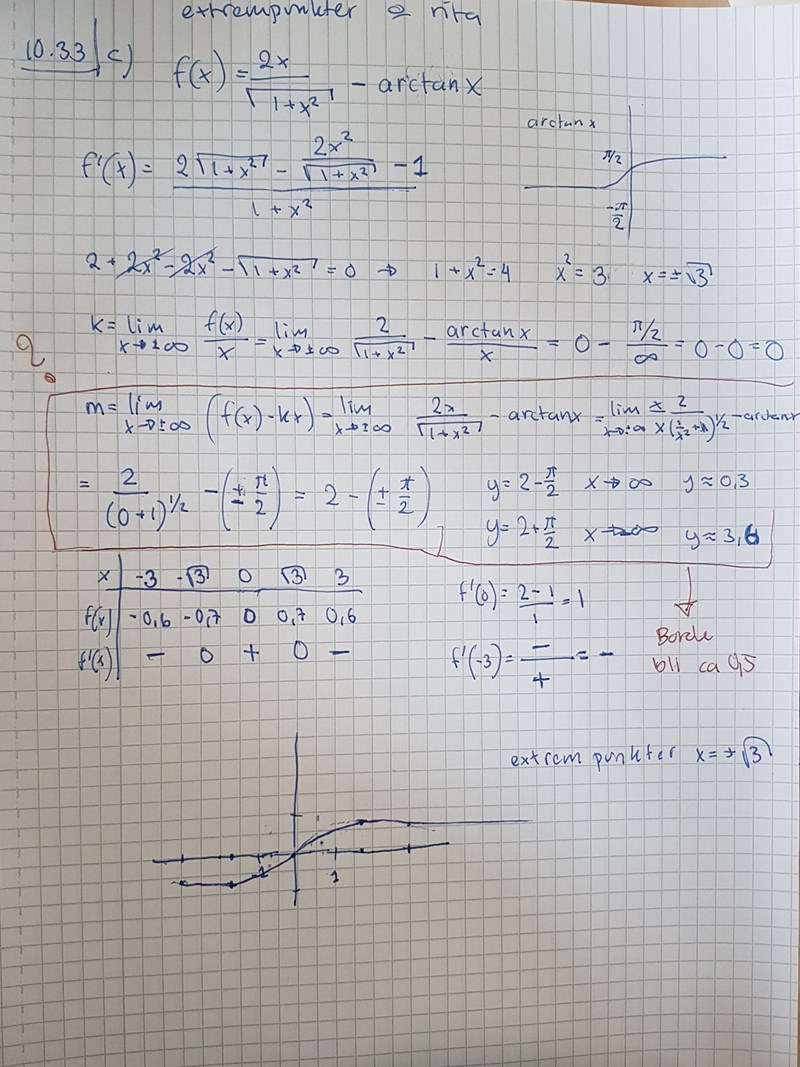 extrempunkter & rita
10.33 c) f(x) = 2x / √(1+x²) - arctan x
arctan x
π/2
-π/2
f'(x) = (2√(1+x²) - 2x²/√(1+x²) - 1) / (1+x²)
2 + 2x² - 2x² - √(1+x²) = 0 → 1+x² = 4 x² = 3 x = ±√3
k = lim x→±∞ f(x)/x = lim x→±∞ 2/√(1+x²) - arctan x / x = 0 - (π/2)/∞ = 0-0 = 0
2.
m = lim x→±∞ (f(x) - kx) = lim x→±∞ 2x/√(1+x²) - arctan x = lim x→±∞ ± 2 / x(1/x²+1)^1/2 - arctan x
= 2/(0+1)^1/2 - (± π/2) = 2 - (± π/2)
y = 2 - π/2 x→∞ y ≈ 0,3
y = 2 + π/2 x→-∞ y ≈ 3,6
x -3 -√3 0 √3 3
f(x) -0,6 -0,7 0 0,7 0,6
f'(x) - 0 + 0 -
f'(0) = (2-1)/1 = 1
f'(-3) = -/+ = -
Borde
bli ca 0,5
extrem punkter x = ±√3
-1
1